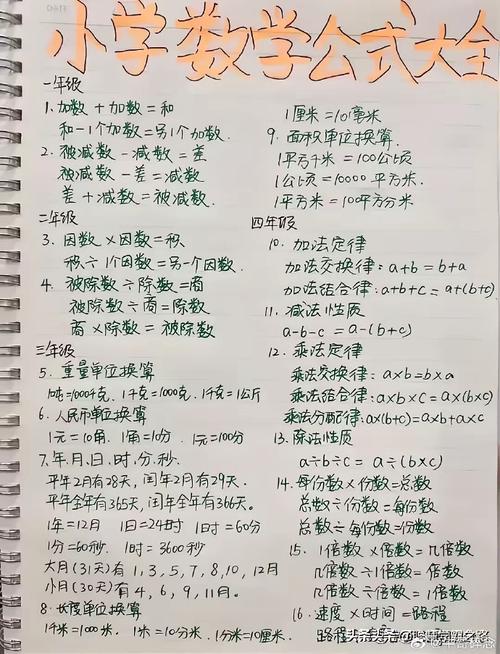 小学数学公式大全
一年级
1.加数+加数=和
和-1个加数=另1个加数.
2.被减数-减数=差
被减数-差=减数
差+减数=被减数.
二年级
3.因数×因数=积
积÷1个因数=另一个因数.
4.被除数÷除数=商
被除数÷商=除数
商×除数=被除数
三年级
5.重量单位换算
1吨=1000千克.1千克=1000克.1千克=1公斤
6.人民币单位换算
1元=10角.1角=10分.1元=100分
7.年、月、日、时、分、秒.
平年2月有28天,闰年2月有29天.
平年全年有365天,闰年全年有366天。
1年=12月 1日=24时 1时=60分
1分=60秒. 1时=3600秒
大月(31天)有1,3,5,7,8,10,12月
小月(30天)有4,6,9,11月.
8.长度单位换算
1千米=1000米.1米=10分米.1分米=10厘米.
1厘米=10毫米
9.面积单位换算.
1平方千米=100公顷
1公顷=10000平方米.
1平方米=10平方分米
四年级
10.加法定律
加法交换律:a+b=b+a
加法结合律:a+b+c=a+(b+c)
11.减法性质
a-b-c=a-(b+c)
12.乘法定律
乘法交换律:a×b=b×a
乘法结合律:a×b×c=a×(b×c)
乘法分配律:a×(b+c)=a×b+a×c
13.除法性质
a÷b÷c=a÷(b×c)
14.每份数×份数=总数
总数÷份数=每份数
总数÷每份数=份数
15.1倍数×倍数=几倍数
几倍数÷1倍数=倍数
几倍数÷倍数=1倍数
16.速度×时间=路程